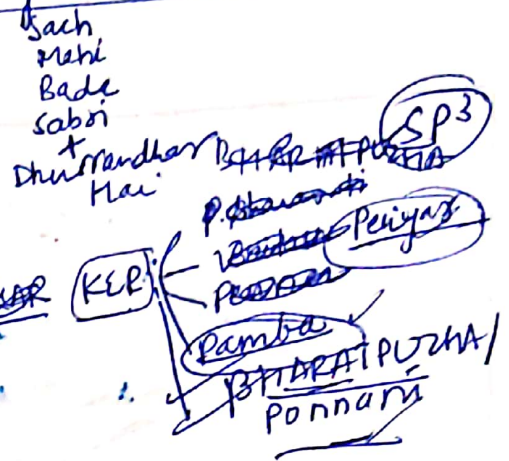 Sach
Mahi
Bade
Sabri
+
Dhurandhar
Hai
SP3
BHARATPUZHA
Periyar
KER
Pamba
BHARATPUZHA/
Ponnani